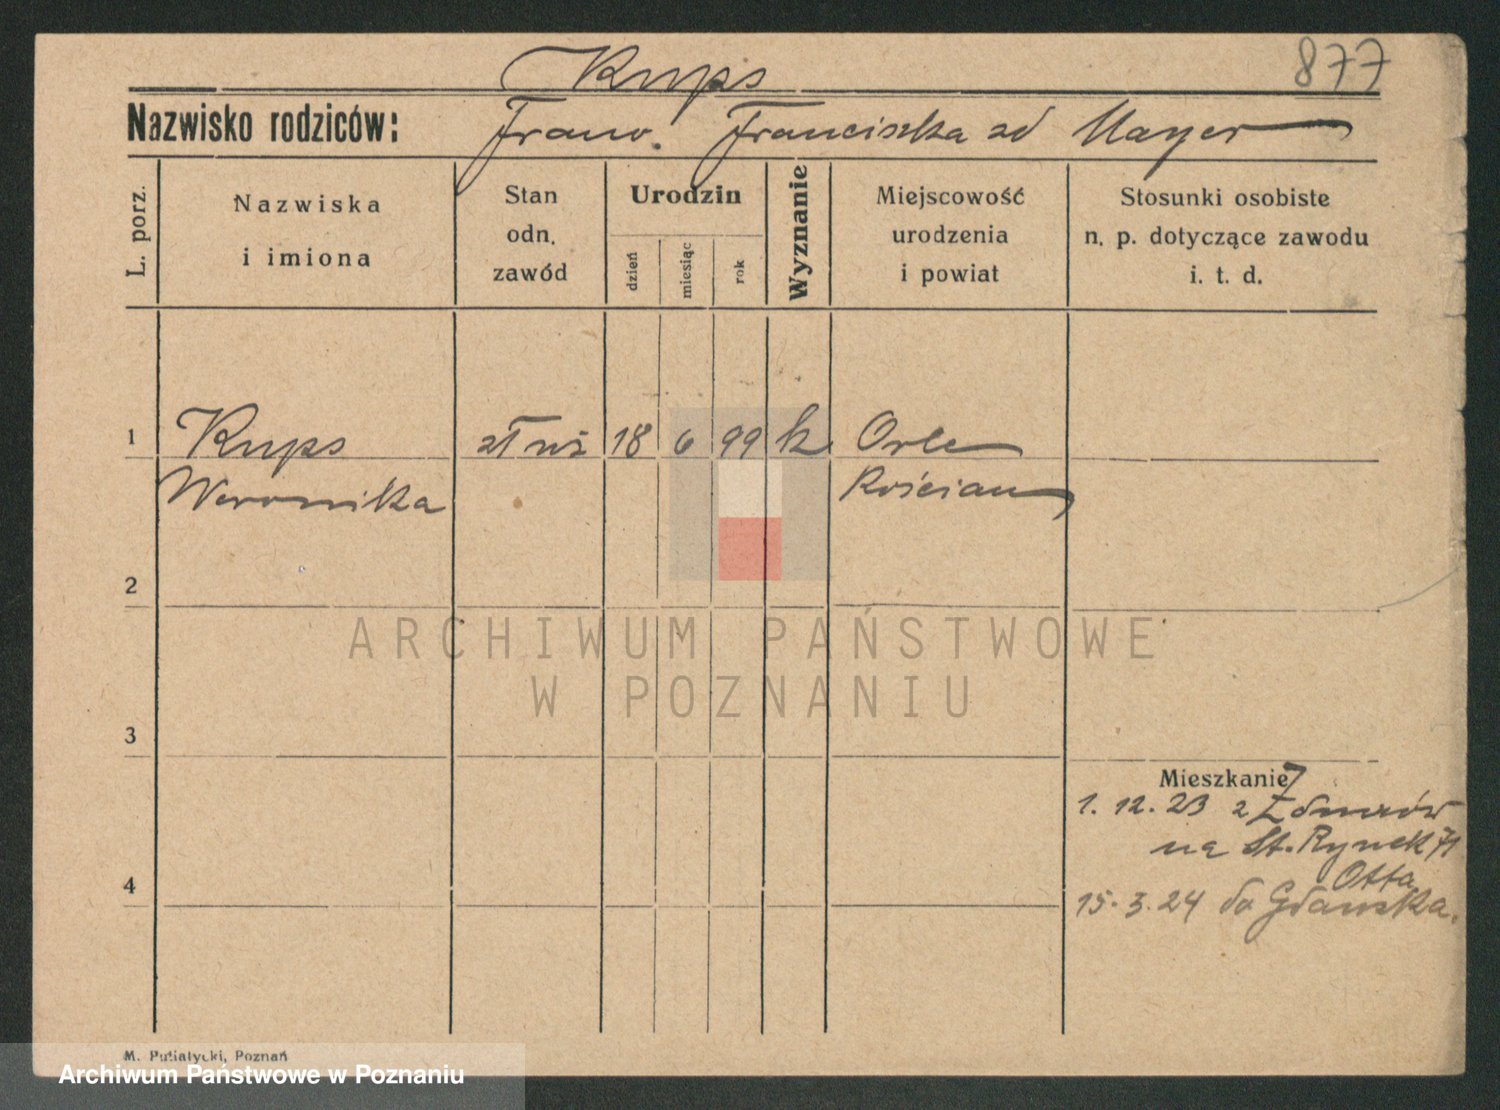 877
Kups
Nazwisko rodziców: Franc. Franciszka zd Mayer
L. porz.
Nazwiska
i imiona
Stan
odn.
zawód
Urodzin
dzień
miesiąc
rok
Wyznanie
Miejscowość
urodzenia
i powiat
Stosunki osobiste
n. p. dotyczące zawodu
i. t. d.
1 Kups 18 6 99 k Orle
Weronika Kościan
2
3
4
Mieszkanie
1. 12. 23 z
na St. Rynek 71
Otta
15. 3. 24 do Gdańska.
ARCHIWUM PAŃSTWOWE
W POZNANIU
M. Putiatycki, Poznań
Archiwum Państwowe w Poznaniu